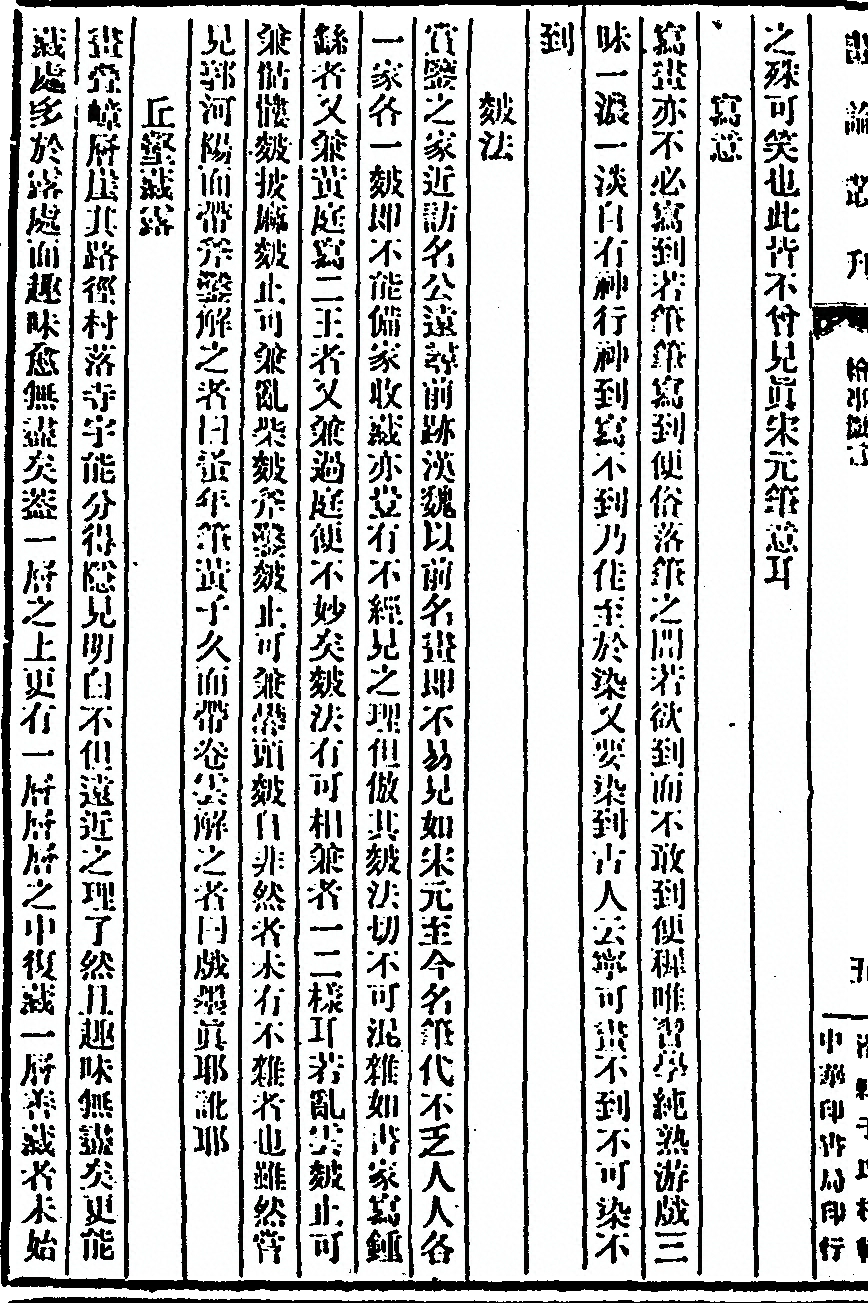 畫論叢刊
五
中華印書局印行
之殊可笑也此皆不曾見眞宋元筆意耳
寫意
寫畫亦不必寫到若筆筆寫到便俗落筆之間若欲到而不敢到便穉唯習學純熟游戲三
味一濃一淡自有神行神到寫不到乃佳至於染又要染到古人云寧可畫不到不可染不
到
皴法
賞鑒之家近訪名公遠尋前跡漢魏以前名畫即不易見如宋元至今名筆代不乏人人各
一家各一皴即不能備家收藏亦豈有不經見之理但倣其皴法切不可混雜如書家寫鍾
繇者又兼黃庭寫二王者又兼過庭便不妙矣皴法有可相兼者一二樣耳若亂雲皴止可
兼骷髏皴披麻皴止可兼亂柴皴斧鑿皴止可兼礬頭皴自非然者未有不雜者也雖然嘗
見郭河陽而帶斧鑿解之者曰蚤年筆黃子久而帶卷雲解之者曰戲墨眞耶訛耶
丘壑藏露
畫疊嶂層崖其路徑村落寺宇能分得隱見明白不但遠近之理了然且趣味無盡矣更能
藏處多於露處而趣味愈無盡矣蓋一層之上更有一層層層之中復藏一層善藏者未始